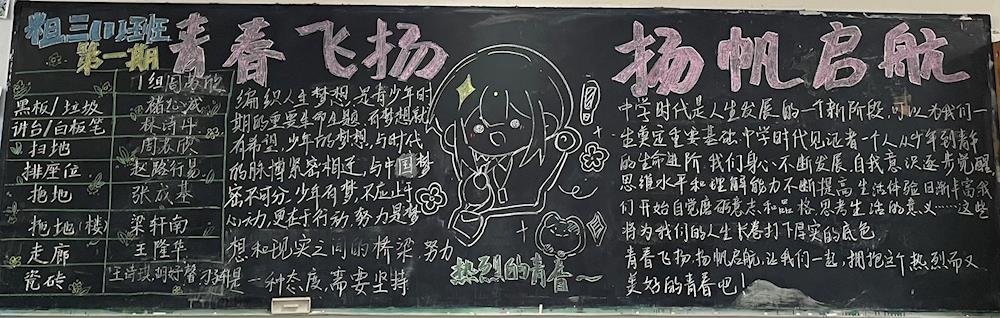 第一期
青春飞扬
扬帆启航
黑板/垃圾
讲台/白板笔 林诗斗
扫地
排座位 赵路行易
拖地 张成基
拖地(楼) 梁轩南
走廊 王隆华
瓷砖
编织人生梦想,是青少年时
期的重要生命主题,有梦想就
有希望,少年的梦想,与时代
的脉搏紧密相连,与中国梦
密不可分,少年有梦,不应止于
心动,更在于行动,努力是梦
想和现实之间的桥梁,努力
是一种态度,需要坚持
热烈的青春
中学时代是人生发展的一个新阶段,可以为我们一
生奠定重要基础.中学时代见证着一个人从少年到青年
的生命进阶,我们身心不断发展,自我意识逐步觉醒
思维水平和理解能力不断提高,生活体验日渐丰富我
们开始自觉磨砺意志和品格,思考生活的意义……这些
将为我们的人生长卷打下厚实的底色
青春飞扬,扬帆启航,让我们一起,拥抱这个热烈而又
美好的青春吧!